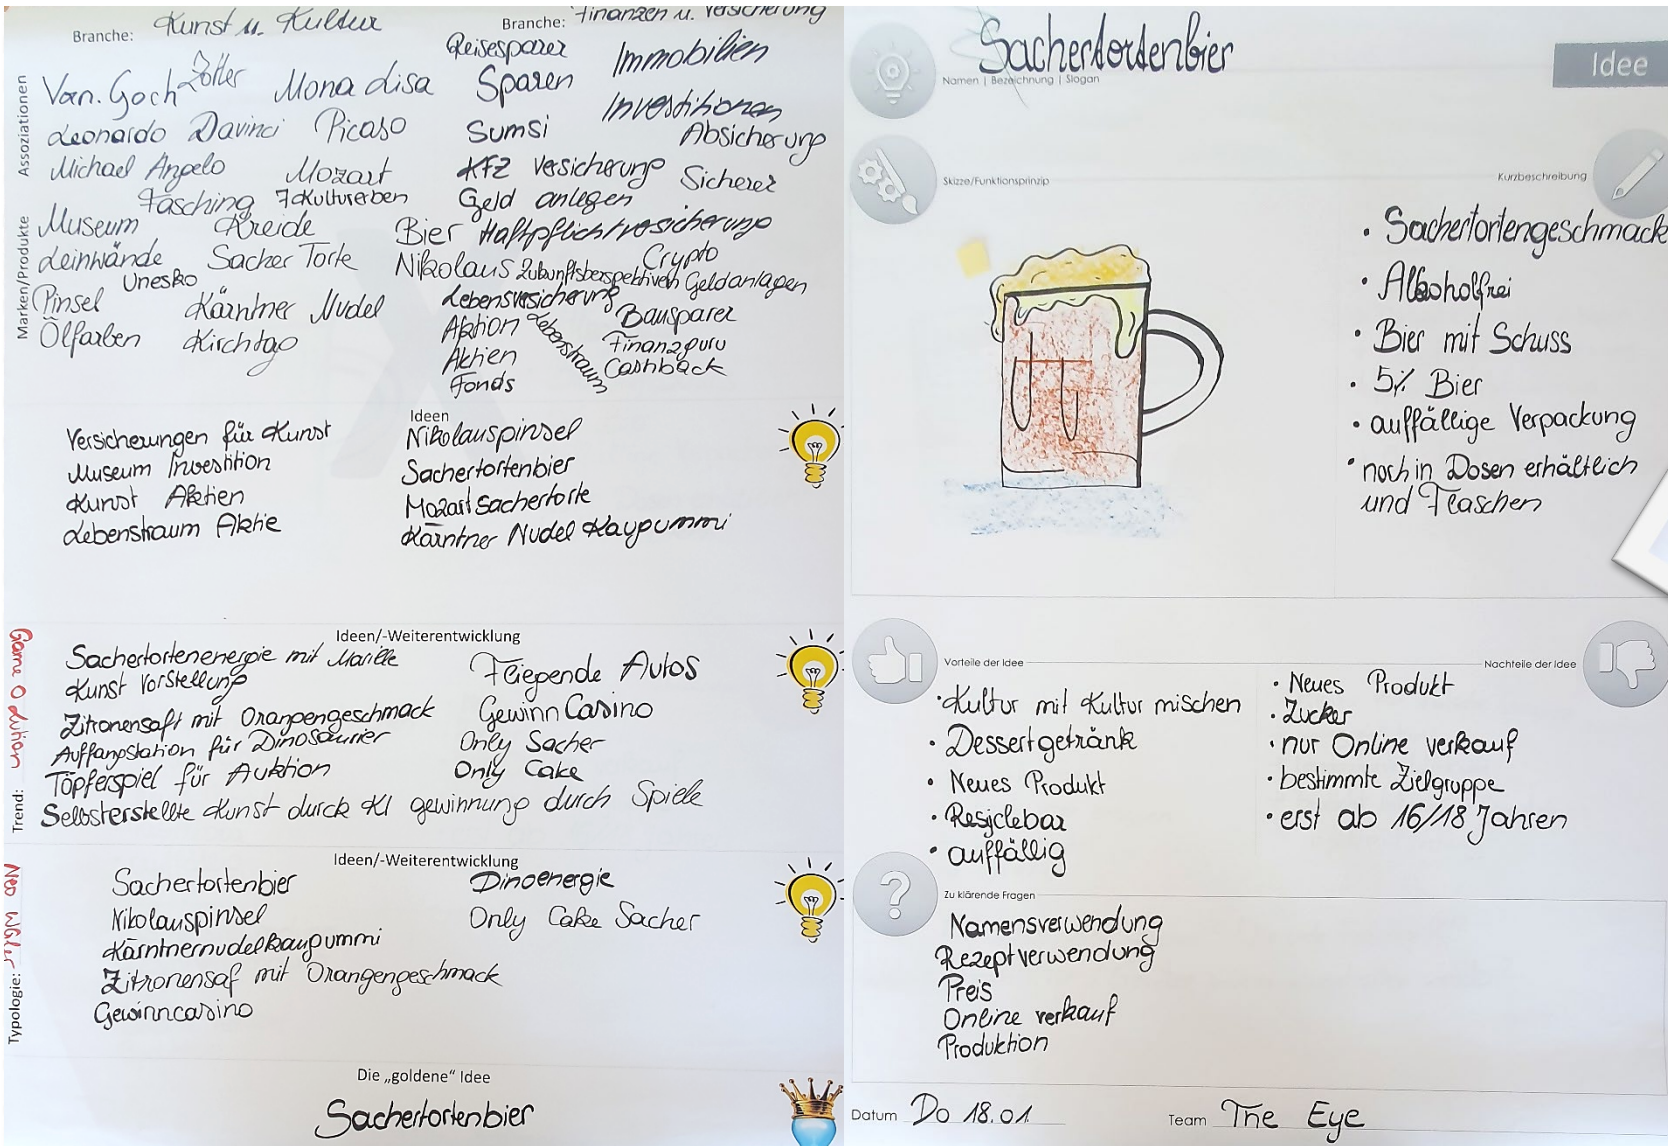 Branche: Kunst u. Kultur
Branche: Finanzen u. Versicherung
Assoziationen
Van. Goch Zotter Mona Lisa
Leonardo Davinci Picaso
Michael Angelo Mozart
Fasching 7 Kulturerben
Marken/Produkte
Museum Kreide
Leinwände Sacher Torte
Unesko
Pinsel Kärntner Nudel
Ölfarben Kirchtag
Reisesparer Immobilien
Sparen
Investitionen
Sumsi Absicherung
KFZ Versicherung Sicherer
Geld anlegen
Bier Haftpflichtversicherung
Crypto
Nikolaus Zukunftsberspektiven Geldanlagen
Lebensversicherung Bausparer
Aktion Lebenstraum Finanzguru
Aktien Cashback
Fonds
Ideen
Versicherungen für Kunst
Museum Investition
Kunst Aktien
Lebenstraum Aktie
Nikolauspinsel
Sachertortenbier
Mozart Sachertorte
Kärntner Nudel Kaugummi
Ideen/-Weiterentwicklung
Trend:
Sachertortenenergie mit Marille
Kunst Vorstellung
Zitronensaft mit Orangengeschmack
Auffangstation für Dinosaurier
Töpferspiel für Auktion
Selbsterstellte Kunst durck KI gewinnung durch Spiele
Fliegende Autos
Gewinn Casino
Only Sacher
Only Cake
Ideen/-Weiterentwicklung
Typologie:
Sachertortenbier
Nikolauspinsel
Kärntnernudelkaugummi
Zitronensaf mit Orangengeschmack
Gewinncasino
Dinoenergie
Only Cake Sacher
Die „goldene“ Idee
Sachertortenbier
Sachertortenbier
Namen | Bezeichnung | Slogan
Idee
Skizze/Funktionsprinzip
Kurzbeschreibung
• Sachertortengeschmack
• Alkoholfrei
• Bier mit Schuss
• 5% Bier
• auffällige Verpackung
• noch in Dosen erhältlich
und Flaschen
Vorteile der Idee
• Kultur mit Kultur mischen
• Dessertgetränk
• Neues Produkt
• Resyclebar
• auffällig
Nachteile der Idee
• Neues Produkt
• Zucker
• nur Online verkauf
• bestimmte Zielgruppe
• erst ab 16/18 Jahren
Zu klärende Fragen
Namensverwendung
Rezeptverwendung
Preis
Online verkauf
Produktion
Datum Do 18.01.
Team The Eye